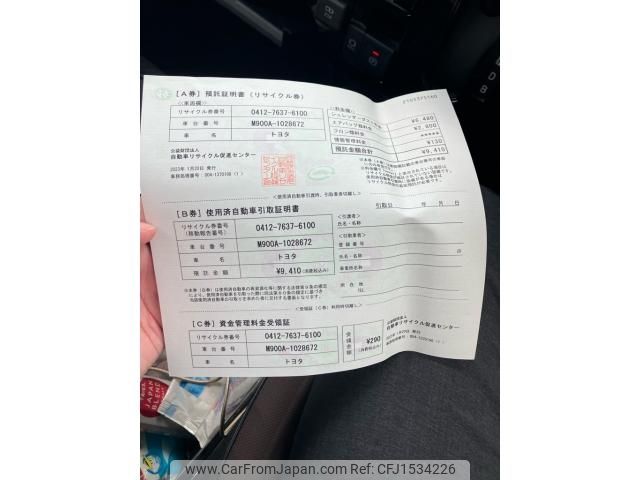 [A券] 預託証明書 (リサイクル券)
2103375140
<<車両欄>>
リサイクル券番号 0412-7637-6100
車台番号 M900A-1028672
車名 トヨタ
<<料金欄>>
¥6,480
エアバッグ類料金 ¥2,800
フロン類料金 *****
情報管理料金 ¥130
預託金額合計 ¥9,410
公益財団法人
自動車リサイクル促進センター
2023年 1月20日 発行
<使用済自動車引渡時、引取者切離し>
引取日 年 月 日
[B券] 使用済自動車引取証明書
リサイクル券番号 0412-7637-6100
(移動報告番号)
車台番号 M900A-1028672
車名 トヨタ
預託金額 ¥9,410 (消費税込み)
<引渡者>
氏名・名称
<引取業者>
登録番号
氏名・名称
事業所名称
所在地
TEL
<受領証 (C券) 利用時切離し>
[C券] 資金管理料金受領証
リサイクル券番号 0412-7637-6100
車台番号 M900A-1028672
車名 トヨタ
受領金額 ¥290
(消費税込み)
公益財団法人
自動車リサイクル促進センター
JAPAN
BLEND
www.CarFromJapan.com - CFJ1534226